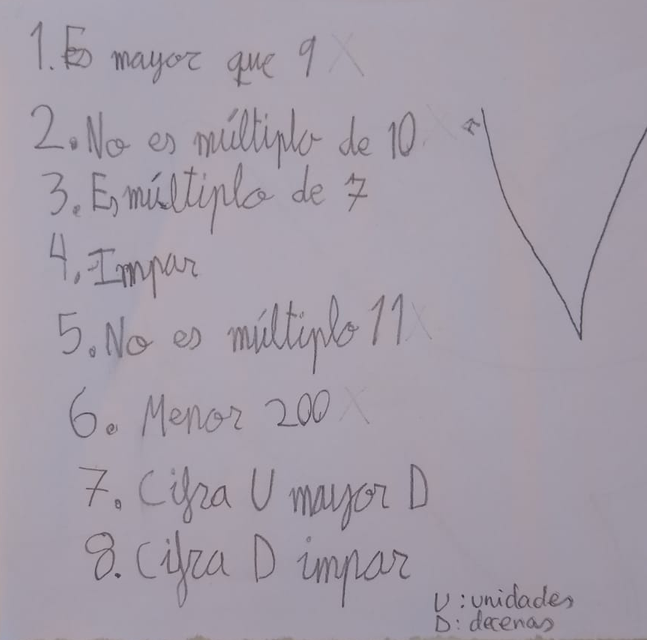 1. Es mayor que 9 X
2. No es múltiplo de 10 X
3. Es múltiplo de 7
4. Impar
5. No es múltiplo 11 X
6. Menor 200 X
7. Cifra U mayor D
8. Cifra D impar
U: unidades
D: decenas